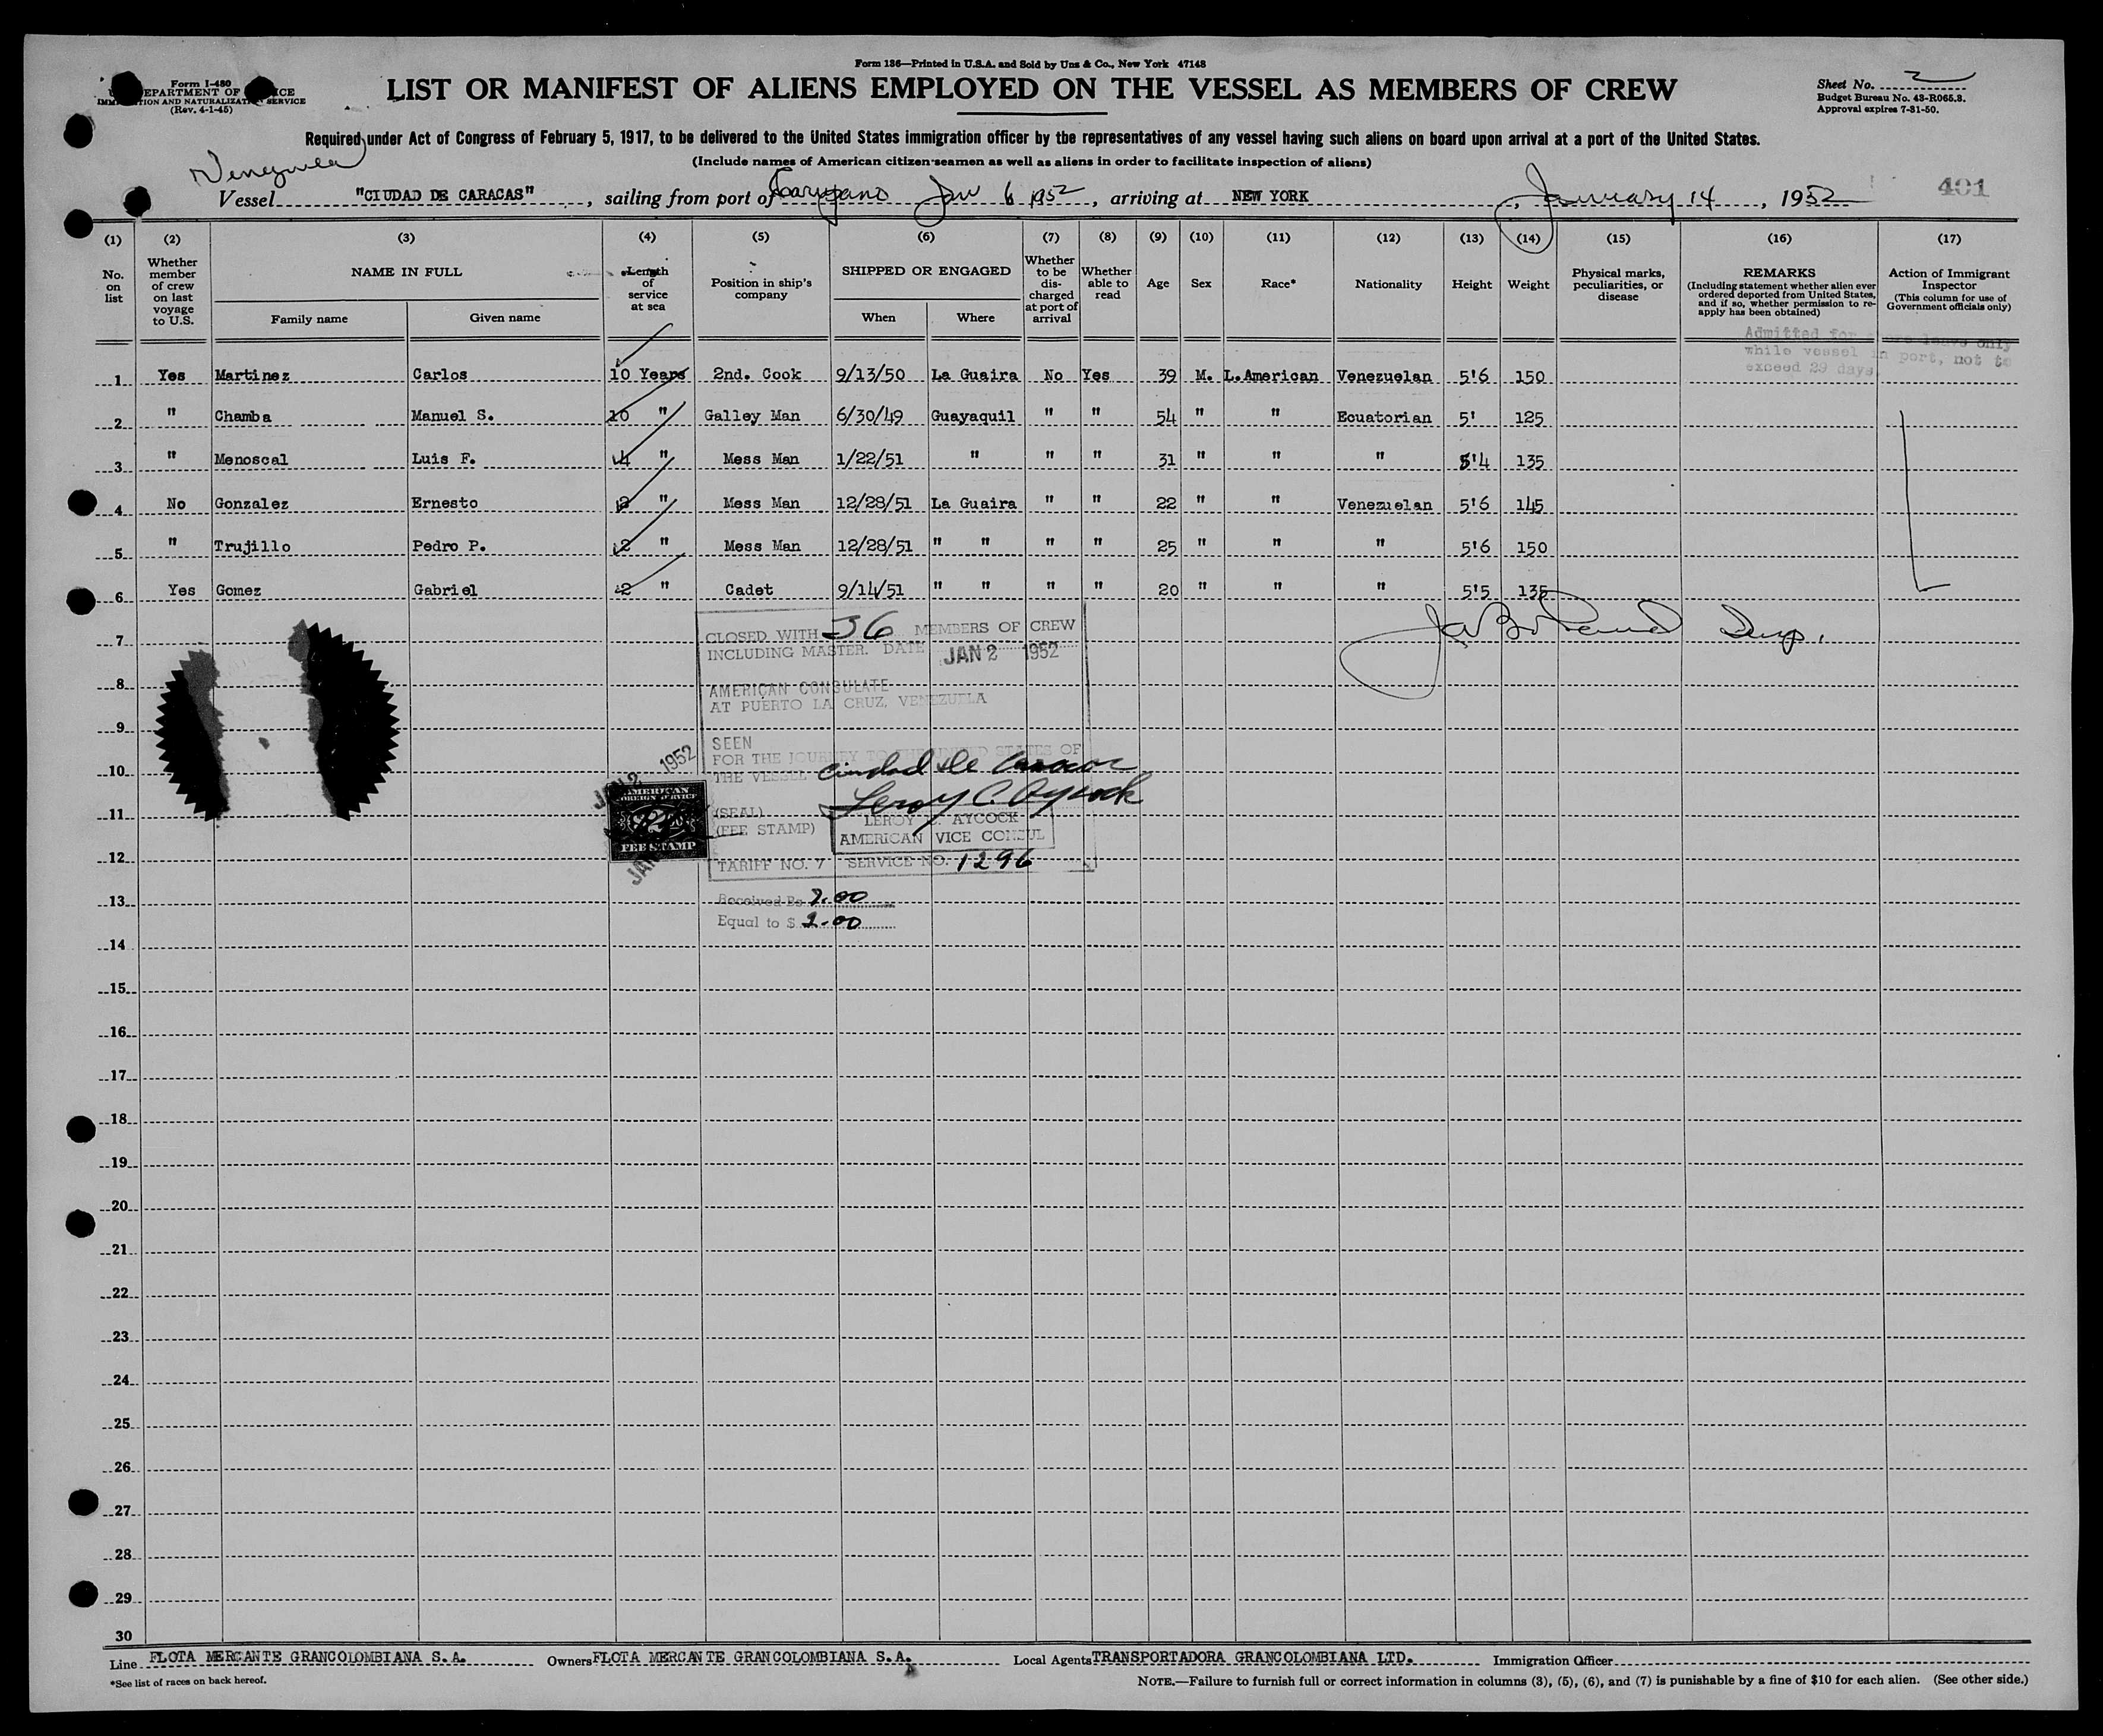 Form 136—Printed in U.S.A. and Sold by Unz & Co., New York 47148
Form I-480
DEPARTMENT OF JUSTICE
IMMIGRATION AND NATURALIZATION SERVICE
(Rev. 4-1-45)
LIST OR MANIFEST OF ALIENS EMPLOYED ON THE VESSEL AS MEMBERS OF CREW
Sheet No. 2
Budget Bureau No. 43-R065.3.
Approval expires 7-31-50.
Required under Act of Congress of February 5, 1917, to be delivered to the United States immigration officer by the representatives of any vessel having such aliens on board upon arrival at a port of the United States.
(Include names of American citizen seamen as well as aliens in order to facilitate inspection of aliens)
Venezuela
Vessel "CIUDAD DE CARACAS", sailing from port of Jan 6 1952, arriving at NEW YORK, January 14, 1952
401
(1) (2) (3) (4) (5) (6) (7) (8) (9) (10) (11) (12) (13) (14) (15) (16) (17)
No. on list
Whether member of crew on last voyage to U.S.
NAME IN FULL
Family name Given name
Length of service at sea
Position in ship's company
SHIPPED OR ENGAGED
When Where
Whether to be discharged at port of arrival
Whether able to read
Age
Sex
Race*
Nationality
Height
Weight
Physical marks, peculiarities, or disease
REMARKS
(Including statement whether alien ever ordered deported from United States, and if so, whether permission to re-apply has been obtained)
Action of Immigrant Inspector
(This column for use of Government officials only)
Admitted for shore leave only
while vessel in port, not to
exceed 29 days
1 Yes Martinez Carlos 10 Years 2nd. Cook 9/13/50 La Guaira No Yes 39 M. L.American Venezuelan 5'6 150
2 " Chamba Manuel S. 10 " Galley Man 6/30/49 Guayaquil " " 54 " " Ecuatorian 5' 125
3 " Menoscal Luis F. 4 " Mess Man 1/22/51 " " " 31 " " " 5'4 135
4 No Gonzalez Ernesto 2 " Mess Man 12/28/51 La Guaira " " 22 " " Venezuelan 5'6 145
5 " Trujillo Pedro P. 2 " Mess Man 12/28/51 " " " " 25 " " " 5'6 150
6 Yes Gomez Gabriel 2 " Cadet 9/14/51 " " " " 20 " " " 5'5 135
7
8
9
10
11
12
13
14
15
16
17
18
19
20
21
22
23
24
25
26
27
28
29
30
CLOSED WITH 36 MEMBERS OF CREW
INCLUDING MASTER. DATE JAN 2 1952
AMERICAN CONSULATE
AT PUERTO LA CRUZ, VENEZUELA
SEEN
FOR THE JOURNEY TO THE UNITED STATES OF
THE VESSEL Ciudad de Caracas
Leroy C. Aycock
(SEAL)
(FEE STAMP)
LEROY C. AYCOCK
AMERICAN VICE CONSUL
TARIFF NO. 7 SERVICE NO. 1296
Received Bs 7.00
Equal to $ 2.00
JAN 2 1952
AMERICAN
FOREIGN SERVICE
FEE STAMP
Line FLOTA MERCANTE GRANCOLOMBIANA S.A. Owners FLOTA MERCANTE GRANCOLOMBIANA S.A. Local Agents TRANSPORTADORA GRANCOLOMBIANA LTD. Immigration Officer
*See list of races on back hereof.
NOTE.—Failure to furnish full or correct information in columns (3), (5), (6), and (7) is punishable by a fine of $10 for each alien. (See other side.)